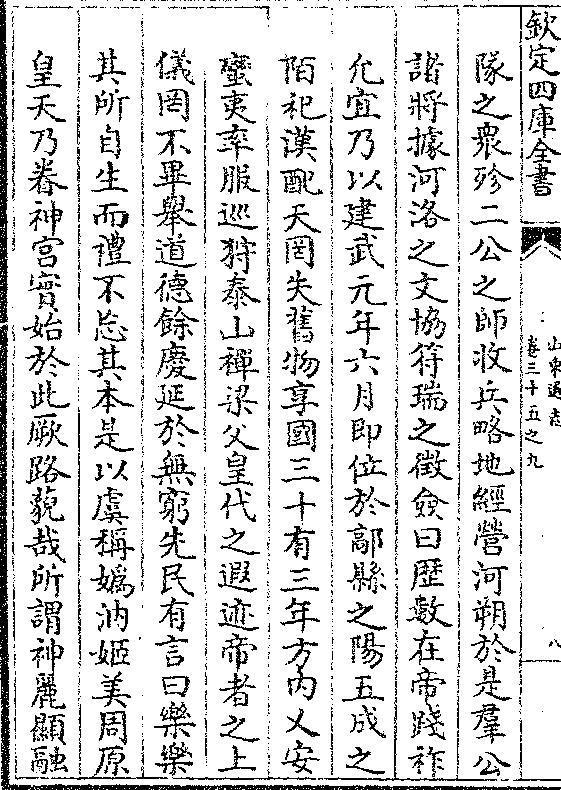 欽定四庫全書
山東通志
卷三十五之九
八
隊之衆殄二公之師收兵略地經營河朔於是羣公
諸將據河洛之文協符瑞之徵僉曰歴數在帝踐祚
允宜乃以建武元年六月即位於鄗縣之陽五成之
陌祀漢配天罔失舊物享國三十有三年方内乂安
蠻夷率服巡狩泰山禪梁父皇代之遐迹帝者之上
儀罔不畢舉道德餘慶延於無窮先民有言曰樂樂
其所自生而禮不忘其本是以虞稱媯汭姬美周原
皇天乃眷神宫實始於此厥路藐哉所謂神麗顯融